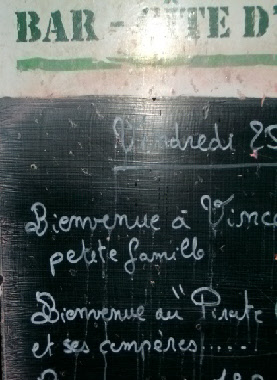 BAR - GÎTE D'
Vendredi 25
Bienvenue à Vince
petite famille
Bienvenue au "Pirate
et ses compères.....